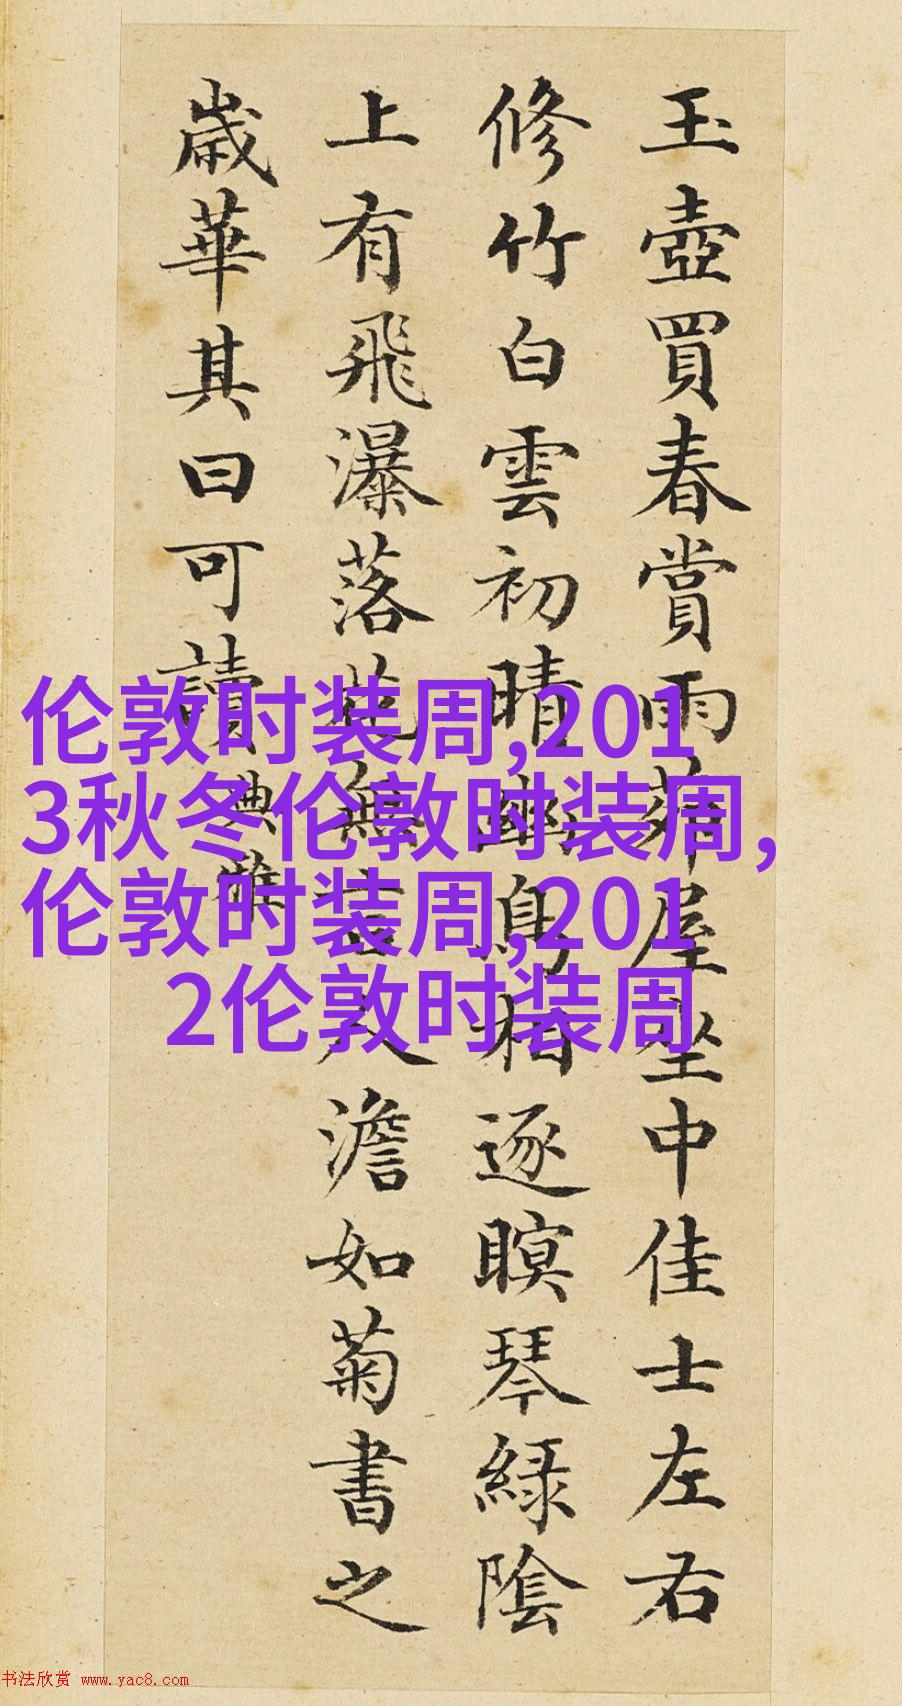 玉壺買春賞雨屋坐中佳士左右
修竹白雲初晴幽鳥相逐瞑琴綠陰
上有飛瀑落花無言人澹如菊書之
歲華其曰可讀
典雅
伦敦时装周,201
3秋冬伦敦时装周,
伦敦时装周,201
2伦敦时装周
书法欣赏 www.yac8.com